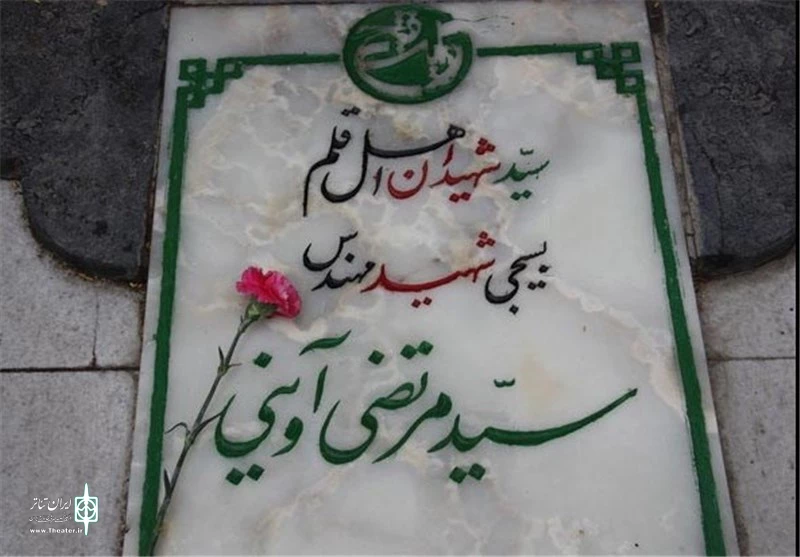 سیّد شهیدان اهل قلم
بسیجی شهید مهندس
سیّد مرتضی آوینی
ایران تئاتر
www.Theater.ir